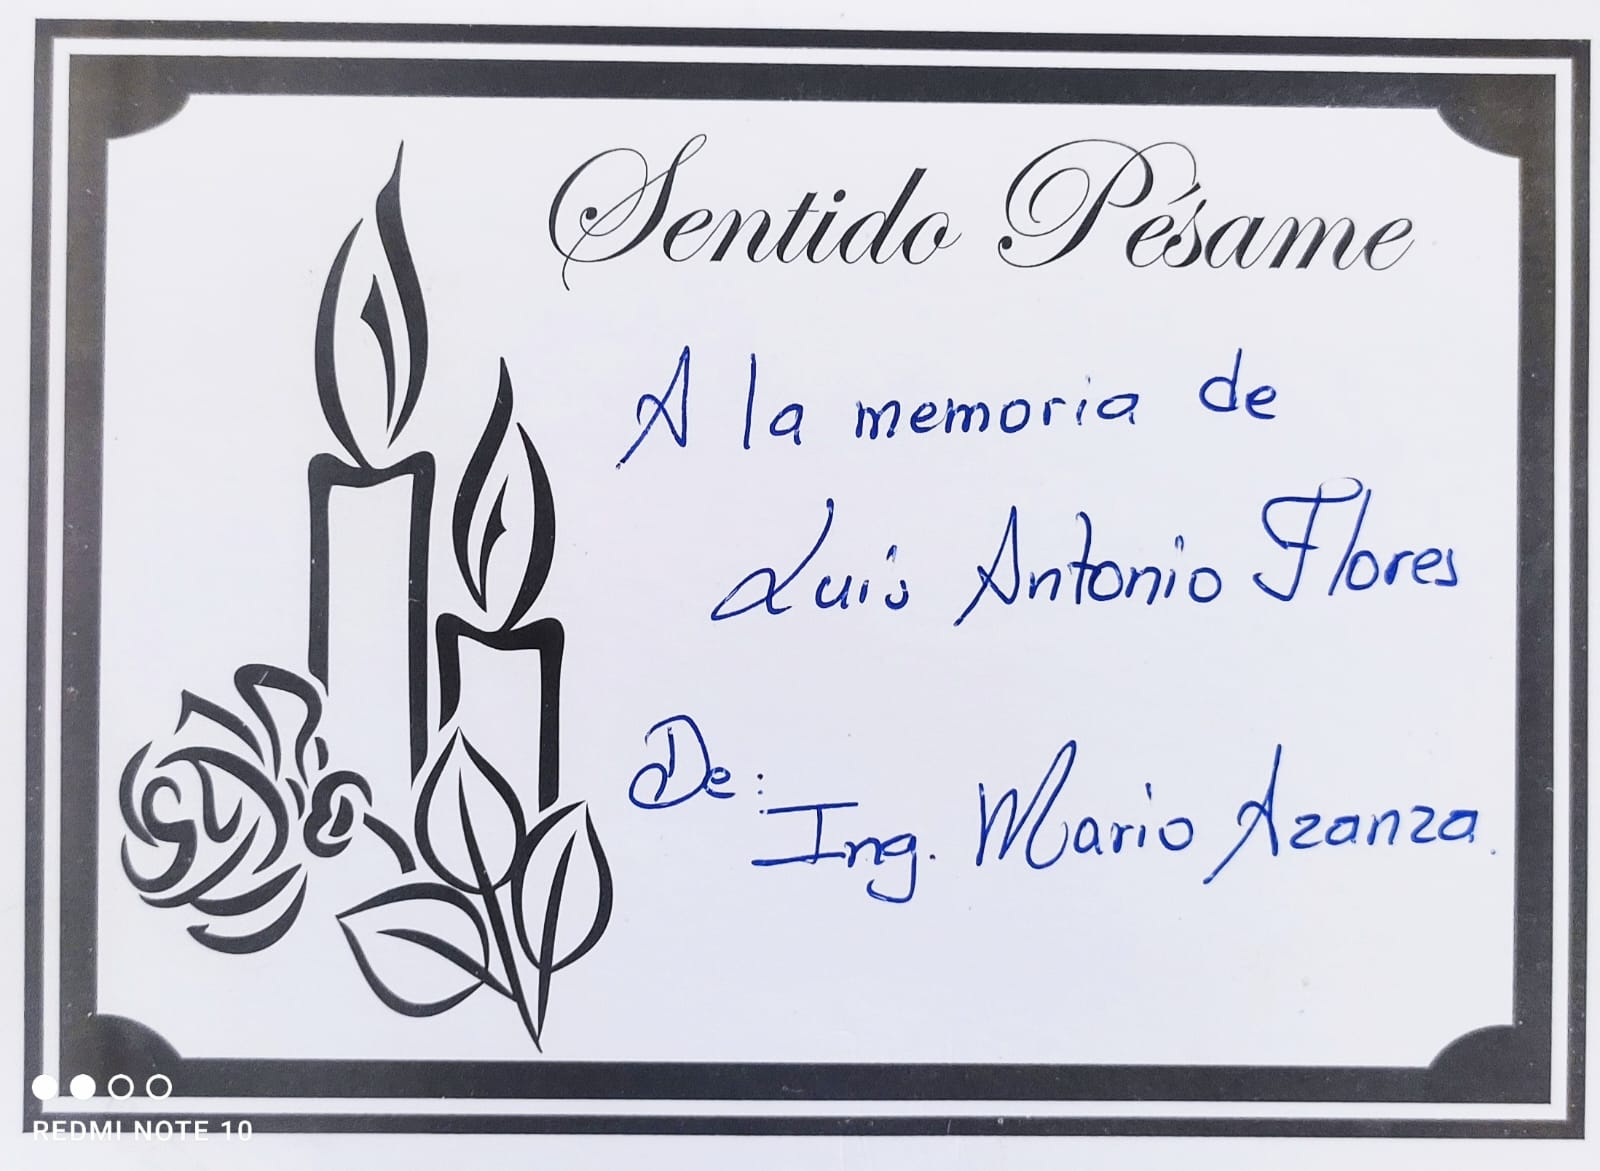 Sentido Pésame
A la memoria de
Luis Antonio Flores
De:
Ing. Mario Azanza.
REDMI NOTE 10